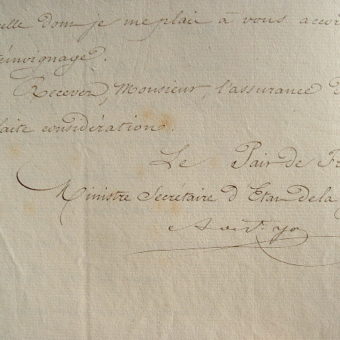 dont je me plais à vous accor
témoignage.
Recevez, Monsieur, l'assurance d
faite considération.
Le Pair de F
Ministre Secrétaire d'Etat de la